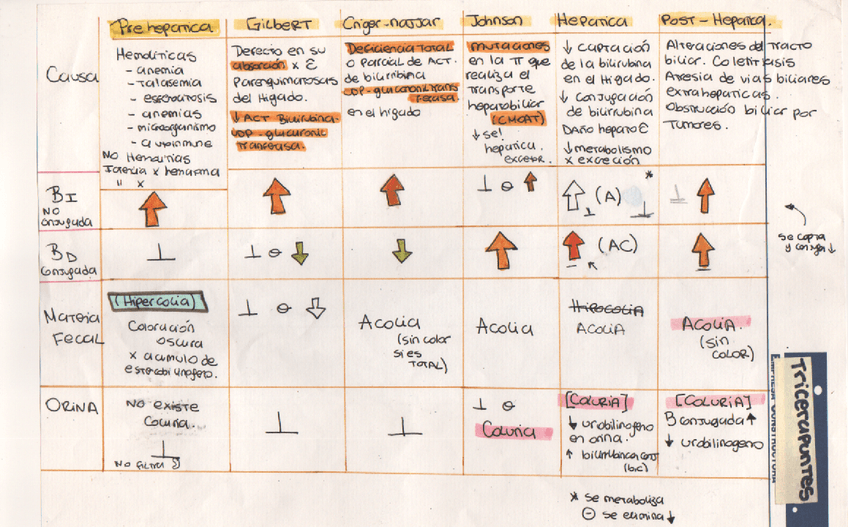 Prehepatica Gilbert Criger-najjar Johnson Hepatica Post-Hepatica.
Causa
Hemolíticas
- anemia
- talasemia
- anemias
- microorganismo
- autoinmune
NO Hemolíticas
" x
Defecto en su
absorción x
Parenquimatosas
del Hígado.
↓ ACT Bilirubina
UDP-glucuronil
transferasa.
Deficiencia Total
o parcial de ACT.
de bilirribina
UDP-glucoronil trans
ferasa
en el hígado
mutaciones
en la π que
realiza el
transporte
hepatobiliar
(CMOAT)
hepatica
excretor.
↓ captación
de la bilirubina
en el Hígado.
↓ conjugación
de bilirrubina
Daño hepato
↓ metabolismo
x excreción
*
Alteraciones del tracto
biliar. Colelitiasis
Atresia de vias biliares
extrahepaticas.
Obstrucción biliar por
Tumores.
BI
NO
conjugada
↑ ↑ ↑ ⊥ o ↑ ↑ ⊥ (A) ⊥ ⊥ ↑
BD
conjugada
⊥ ⊥ o ↓ ↓ ↑ ↑ (AC) ↑
se capta
y conjuga ↓
Materia
Fecal
(Hipercolia)
Coloración
oscura
x acumulo de
estercobilinogeno.
⊥ o ↓
Acolia
(sin color
si es
TOTAL)
Acolia
Hipocolia
Acolia
Acolia.
(sin
color)
Orina
NO existe
Coluria.
⊥
NO filtra
⊥
⊥
⊥ o
Coluria
[Coluria]
↓ urobilinogeno
en orina.
↑ bilirrubina conj
[Coluria]
B conjugada ↑
↓ urobilinogeno
* se metaboliza
⊖ se elimina ↓
Tricerapuntes